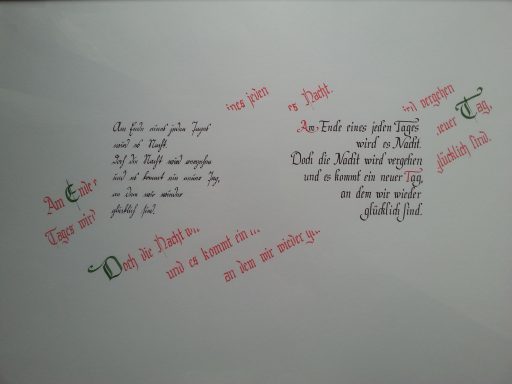 Am Ende eines jeden
Tages wird es Nacht.
Doch die Nacht wird vergehen
und es kommt ein neuer Tag,
an dem wir wieder glücklich sind.
Am Ende eines jeden Tages
wird es Nacht.
Doch die Nacht wird vergehen
und es kommt ein neuer Tag,
an dem wir wieder
glücklich sind.
Am Ende eines jeden Tages
wird es Nacht.
Doch die Nacht wird vergehen
und es kommt ein neuer Tag,
an dem wir wieder
glücklich sind.